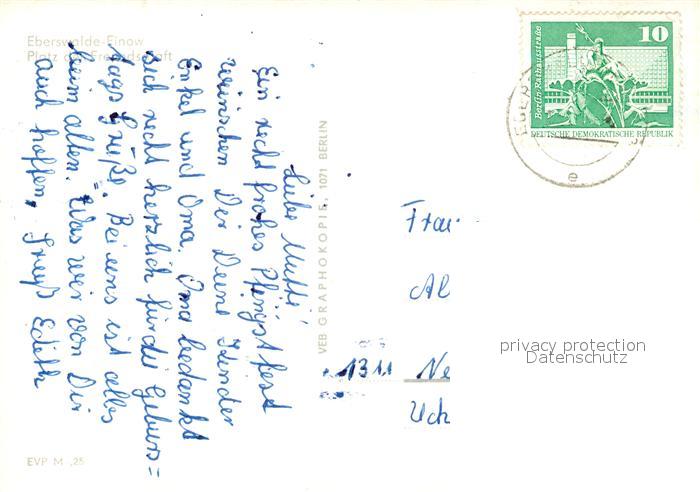 Eberswalde-Finow
Platz der Freundschaft
Liebe Mutti!
Ein recht frohes Pfingstfest
wünschen Dir Deine Kinder
Enkel und Oma. Oma bedankt
sich recht herzlich für die Geburs=
tags Grüße. Bei uns ist alles
beim alten. Was wir von Dir
auch hoffen, Gruß Edith
EVP M ,25
VEB GRAPHOKOPIE, 1071 BERLIN
10
Berlin Rathausstraße
DEUTSCHE DEMOKRATISCHE REPUBLIK
EBER
e
Frau
Al
1311 Ne
Uck
privacy protection
Datenschutz